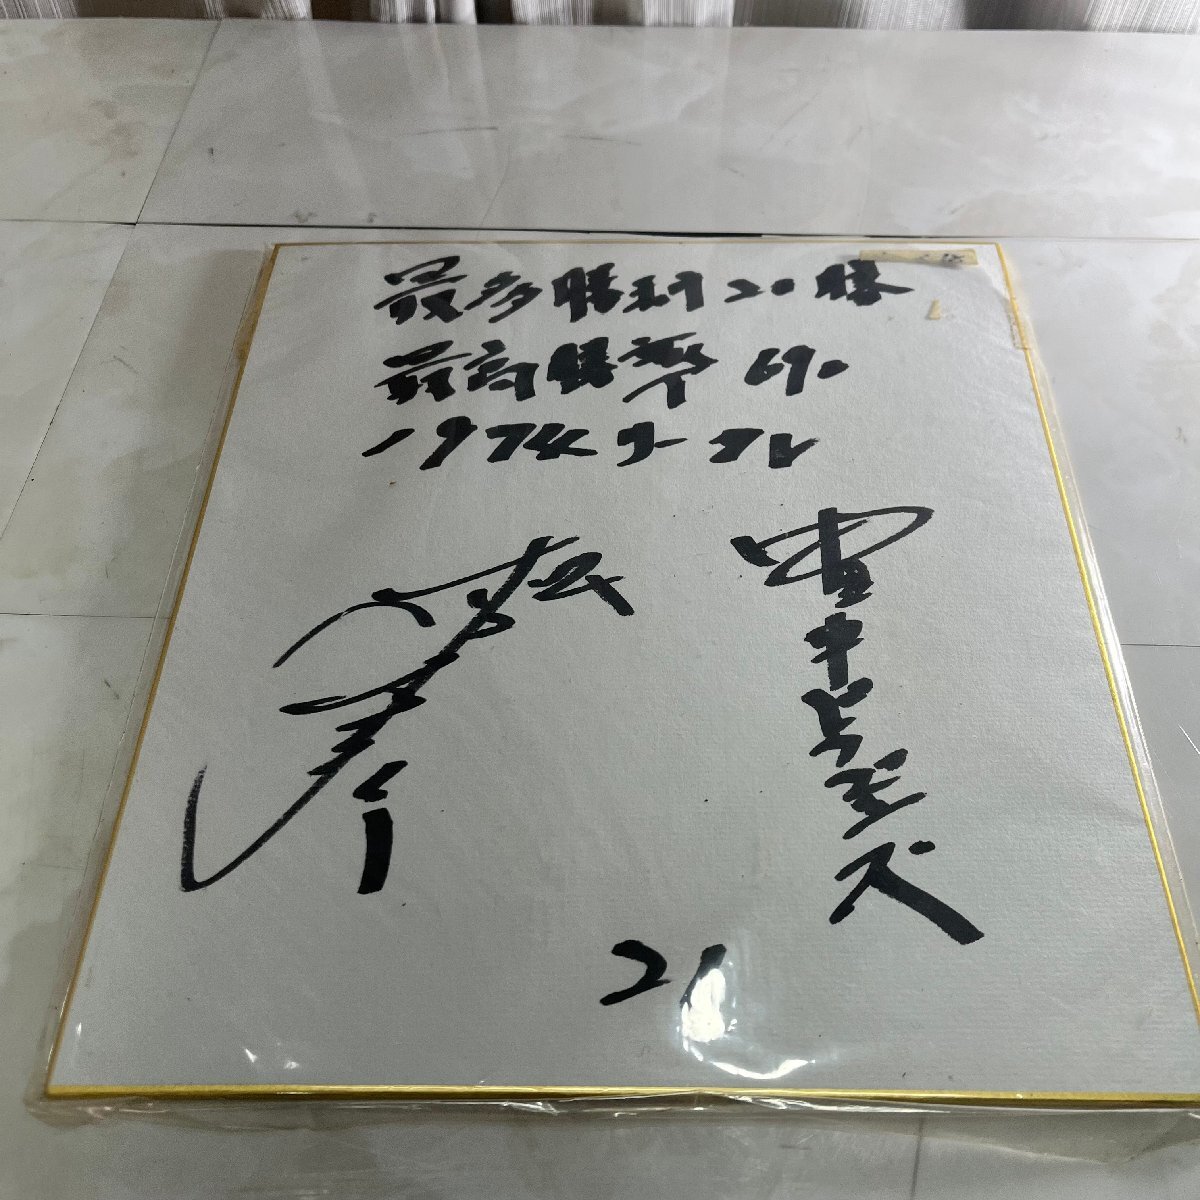 最多勝利20勝
最高勝率 690
1974
中日ドラゴンズ
松本幸行
21